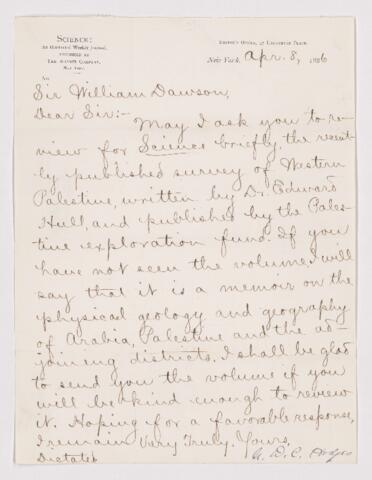 SCIENCE:
An Illustrated Weekly Journal,
PUBLISHED BY
THE SCIENCE COMPANY,
NEW YORK.
EDITOR'S OFFICE, 47 LAFAYETTE PLACE.
New York, Apr. 8, 1886
Sir William Dawson,
Dear Sir:-
May I ask you to re-
view for Science briefly, the recent-
ly published survey of Western
Palestine, written by Dr. Edward
Hull, and published by the Pales-
tine exploration fund. If you
have not seen the volume I will
say that it is a memoir on the
physical geology and geography
of Arabia, Palestine and the ad-
joining districts. I shall be glad
to send you the volume if you
will be kind enough to review
it. Hoping for a favorable response,
I remain Very Truly Yours,
Dictated